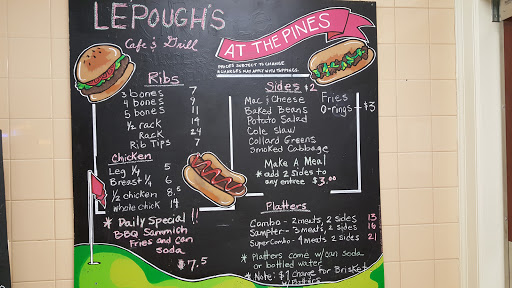 LEPOUGH'S
Cafe & Grill
AT THE PINES
PRICES SUBJECT TO CHANGE
& CHARGES MAY APPLY WITH TOPPINGS
Ribs
3 bones 7
4 bones 9
5 bones 11
1/2 rack 14
Rack 24
Rib Tips 7
Chicken
Leg 1/4 5
Breast 1/4 6
1/2 chicken 8.5
whole chick 14
* Daily Special !!
BBQ Sammich
Fries and Can
Soda
$7.5
Sides $2
Mac & Cheese
Baked Beans
Potato Salad
Cole Slaw
Collard Greens
Smoked Cabbage
Fries
O-rings $3
Make A Meal
* add 2 sides to
any entree $3.00
Platters
Combo - 2 meats, 2 sides 13
Sampler - 3 meats, 2 sides 16
Super Combo - 4 meats 2 sides 21
* Platters come w/can soda
or bottled water
* Note: $1 Charge for Brisket
w/ Platters